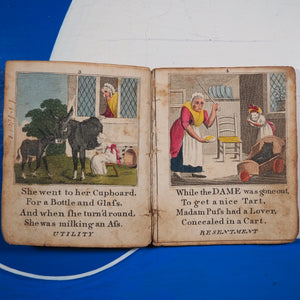 3
She went to her Cupboard,
For a Bottle and Glaſs,
And when ſhe turn'd round,
She was milking an Aſs.
UTILITY
4
While the DAME was gone out,
To get a nice Tart,
Madam Puſs had a Lover,
Concealed in a Cart.
RESENTMENT